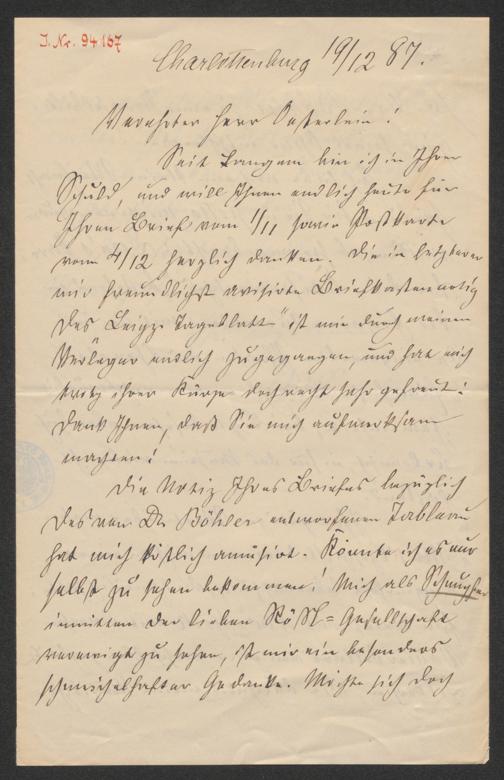 J. Nr. 94167
Charlottenburg 19/12 87.
Verehrter Herr Oesterlein!
Seit Langem bin ich in Ihrer
Schuld, und will Ihnen endlich heute für
Ihren Brief vom 1/11 sowie Postkarte
vom 4/12 herzlich danken. Die in letzterer
mir freundlichst avisirte Briefkastennotiz
des „Leipz. Tageblatt" ist mir durch meinen
Verleger endlich zugegangen, und hat mich
trotz ihrer Kürze doch recht sehr gefreut!
Dank Ihnen, daß Sie mich aufmerksam
machten!
Die Notiz Ihres Briefes bezüglich
des von Dr. Böhler entworfenen Tableau
hat mich köstlich amüsirt. Könnte ich es nur
selbst zu sehen bekommen! Mich als
inmitten der lieben Rößl=Gesellschaft
verewigt zu sehen, ist mir ein besonders
schmeichelhafter Gedanke. Möchte sich doch